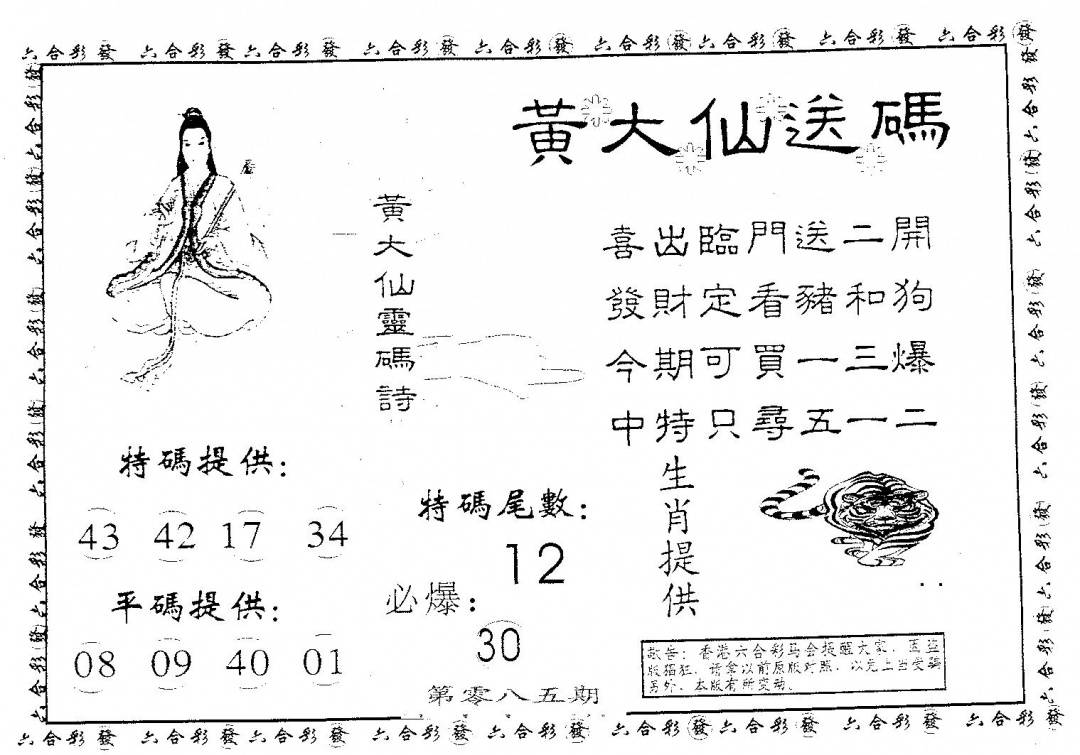 六合彩發 六合彩發六合彩發 六合彩發 六合彩發 六合彩發六合彩發 六合彩發 六合彩發
黃大仙送碼
黃大仙靈碼詩
喜出臨門送二開
發財定看豬和狗
今期可買一三爆
中特只尋五一二
特碼提供:
43 42 17 34
平碼提供:
08 09 40 01
特碼尾數:
12
必爆:
30
生肖提供
敬告：香港六合彩马会提醒大家，因盗
版猖狂，请拿以前原版对照，以免上当受骗
另外，本版有所变动。
第零八五期
六合彩發 六合彩發六合彩發 六合彩發 六合彩發 六合彩發六合彩發 六合彩發 六合彩發